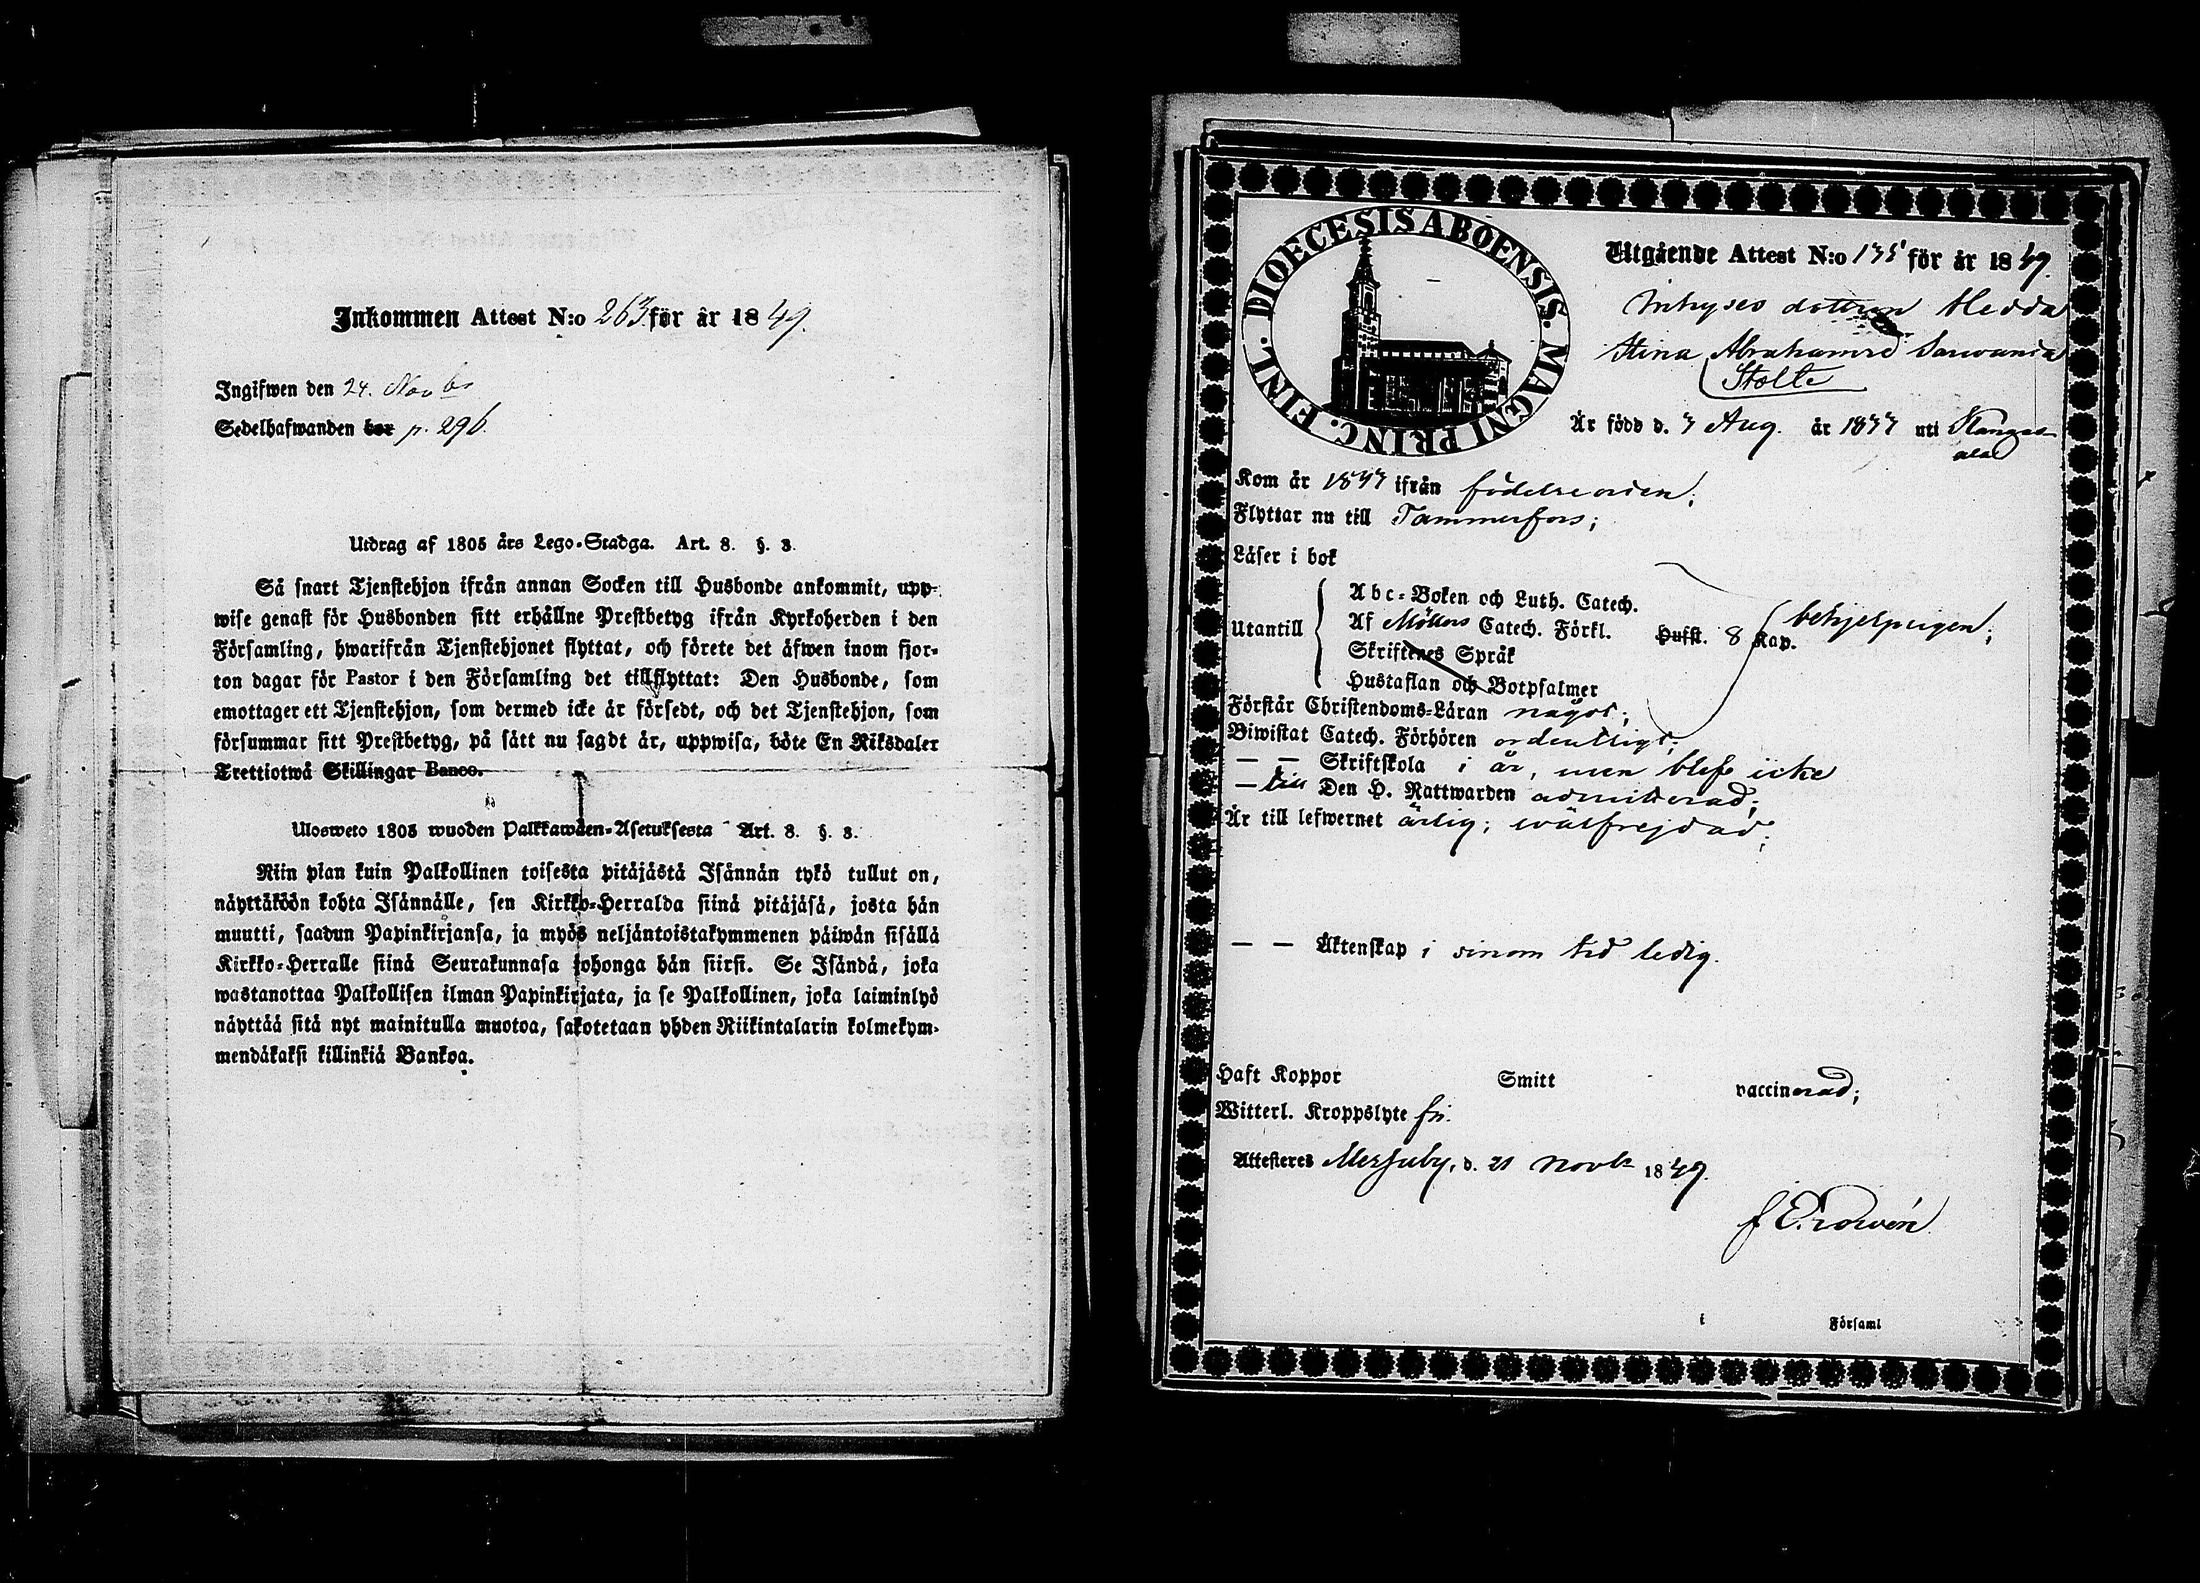 Inkommen Attest N:o 263. för år 1849.
Ingifwen den 24. Novbr
Sedelhafwanden bor p. 296.
Utdrag af 1805 års Lego-Stadga. Art. 8. §. 3.
Så snart Tjenstehjon ifrån annan Socken till Husbonde ankommit, upp-
wise genast för Husbonden sitt erhållne Prestbetyg ifrån Kyrkoherden i den
Församling, hwarifrån Tjenstehjonet flyttat, och förete det äfwen inom fjor-
ton dagar för Pastor i den Församling det tillflyttat: Den Husbonde, som
emottager ett Tjenstehjon, som dermed icke är försedt, och det Tjenstehjon, som
försummar sitt Prestbetyg, på sätt nu sagdt är, uppwisa, böte En Riksdaler
Trettiotwå Skillingar Banco.
Ulosweto 1805 wuoden Palkkawäen-Asetuksesta Art. 8. §. 3.
Niin pian kuin Palkollinen toisesta pitäjästä Isännän tykö tullut on,
näyttäköön kohta Isännälle, sen Kirkko-Herralda siinä pitäjäsä, josta hän
muutti, saadun Papinkirjansa, ja myös neljäntoistakymmenen päiwän sisällä
Kirkko-Herralle siinä Seurakunnasa johonga hän siirsi. Se Isändä, joka
wastanottaa Palkollisen ilman Papinkirjata, ja se Palkollinen, joka laiminlyö
näyttää sitä nyt mainitulla muotoa, sakotetaan yhden Riikintalarin kolmekym-
mendäkaksi killinkiä Bankoa.
DIOECESIS ABOENSIS. MAGNI PRINC. FINL.
Utgående Attest N:o 135 för år 1849.
Inhyses dottren Hedda
Stina Abrahamsd Sarwania
Stolte
Är född d. 3 Aug. år 1833 uti Kangas-
ala
Kom år 1847 ifrån födelseorten;
Flyttar nu till Tammerfors;
Läser i bok
Utantill
Abc-Boken och Luth. Catech.
Af Möllers Catech. Förkl. Husst. 8 Kap. behjelpligen;
Skriftenes Språk
Hustaflan och Botpsalmer
Förstår Christendoms-Läran något;
Biwistat Catech. Förhören ordentligt;
— — Skriftskola i år, men blef icke
— till Den H. Nattwarden admitterad;
Är till lefwernet ärlig; wälfrejdad;
— — Äktenskap i sinom tid ledig.
Haft Koppor Smitt vaccinerad;
Witterl. Kroppslyte fri.
Attesteres Messuby, d. 21 Novbr 1849.
i Församl